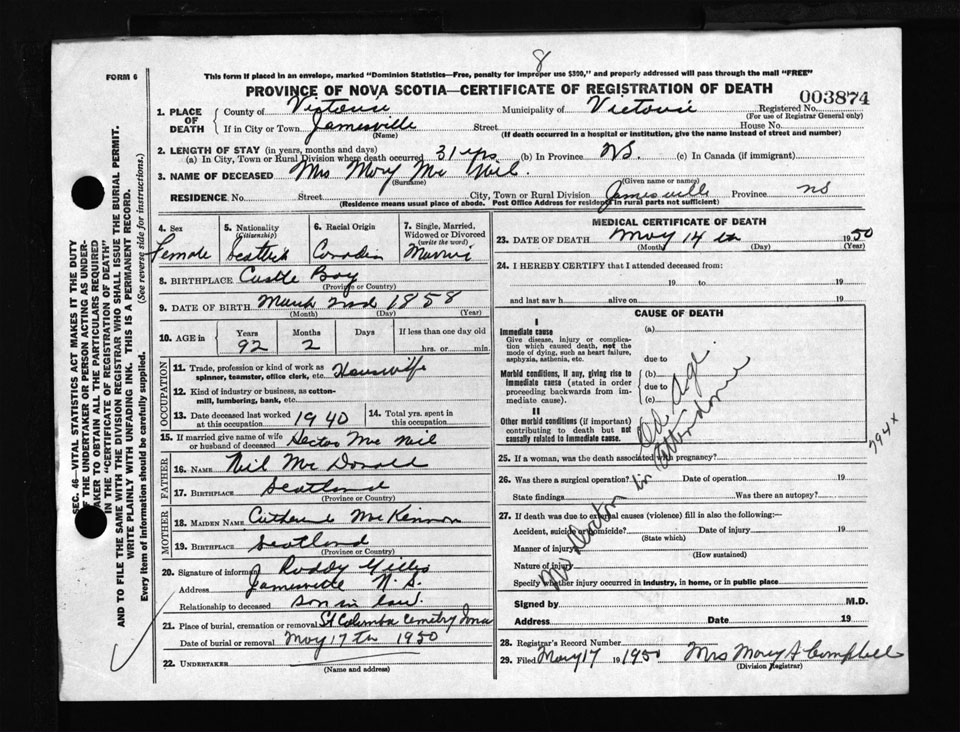 8
FORM 6
This form if placed in an envelope, marked "Dominion Statistics—Free, penalty for improper use $300," and properly addressed will pass through the mail "FREE"
PROVINCE OF NOVA SCOTIA—CERTIFICATE OF REGISTRATION OF DEATH
003874
1. PLACE OF DEATH
County of Victoria Municipality of Victoria Registered No.
(For use of Registrar General only)
If in City or Town Jamesville Street House No.
(Name) (If death occurred in a hospital or institution, give the name instead of street and number)
2. LENGTH OF STAY (in years, months and days)
(a) In City, Town or Rural Division where death occurred 31 yrs (b) In Province NS. (c) In Canada (if immigrant)
3. NAME OF DECEASED Mrs Mary Mc Neil
(Surname) (Given name or names)
RESIDENCE. No. Street City, Town or Rural Division Jamesville Province NS
(Residence means usual place of abode. Post Office Address for residents in rural parts not sufficient)
4. Sex
Female
5. Nationality
(Citizenship)
Scottish
6. Racial Origin
Canadin
7. Single, Married, Widowed or Divorced
(write the word)
Married
8. BIRTHPLACE Castle Bay
(Province or Country)
9. DATE OF BIRTH March 2nd 1858
(Month) (Day) (Year)
10. AGE in
Years Months Days If less than one day old
92 2 hrs. or min.
OCCUPATION
11. Trade, profession or kind of work as spinner, teamster, office clerk, etc. Housewife
12. Kind of industry or business, as cotton-mill, lumbering, bank, etc.
13. Date deceased last worked at this occupation 1940
14. Total yrs. spent in this occupation
15. If married give name of wife or husband of deceased Hector Mc Neil
FATHER
16. NAME Neil Mc Donald
17. BIRTHPLACE Scotland
(Province or Country)
MOTHER
18. MAIDEN NAME Catherine McKinnon
19. BIRTHPLACE Scotland
(Province or Country)
20. Signature of informant Roddy Gillis
Address Jamesville N.S.
Relationship to deceased son in law.
21. Place of burial, cremation or removal St Columba Cemetry Iona
Date of burial or removal May 17th 1950
22. UNDERTAKER
(Name and address)
MEDICAL CERTIFICATE OF DEATH
23. DATE OF DEATH May 14 th 1950
(Month) (Day) (Year)
24. I HEREBY CERTIFY that I attended deceased from:
19 to 19
and last saw h alive on 19
CAUSE OF DEATH
I
Immediate cause
Give disease, injury or complication which caused death, not the mode of dying, such as heart failure, asphyxia, asthenia, etc.
(a)
due to
Morbid conditions, if any, giving rise to immediate cause (stated in order proceeding backwards from immediate cause).
(b)
due to
(c)
II
Other morbid conditions (if important) contributing to death but not causally related to immediate cause.
Old Age
No Doctor in attendance
794x
25. If a woman, was the death associated with pregnancy?
26. Was there a surgical operation? Date of operation 19
State findings Was there an autopsy?
27. If death was due to external causes (violence) fill in also the following:—
Accident, suicide or homicide? Date of injury 19
(State which)
Manner of injury
(How sustained)
Nature of injury
Specify whether injury occurred in industry, in home, or in public place
Signed by M.D.
Address Date 19
28. Registrar's Record Number
29. Filed May 17 1950 Mrs Mary A Campbell
(Division Registrar)
SEC. 46—VITAL STATISTICS ACT MAKES IT THE DUTY
OF THE UNDERTAKER OR PERSON ACTING AS UNDERTAKER TO OBTAIN ALL THE PARTICULARS REQUIRED
IN THE "CERTIFICATE OF REGISTRATION OF DEATH"
AND TO FILE THE SAME WITH THE DIVISION REGISTRAR WHO SHALL ISSUE THE BURIAL PERMIT.
WRITE PLAINLY WITH UNFADING INK. THIS IS A PERMANENT RECORD.
Every item of information should be carefully supplied. (See reverse side for instructions.)